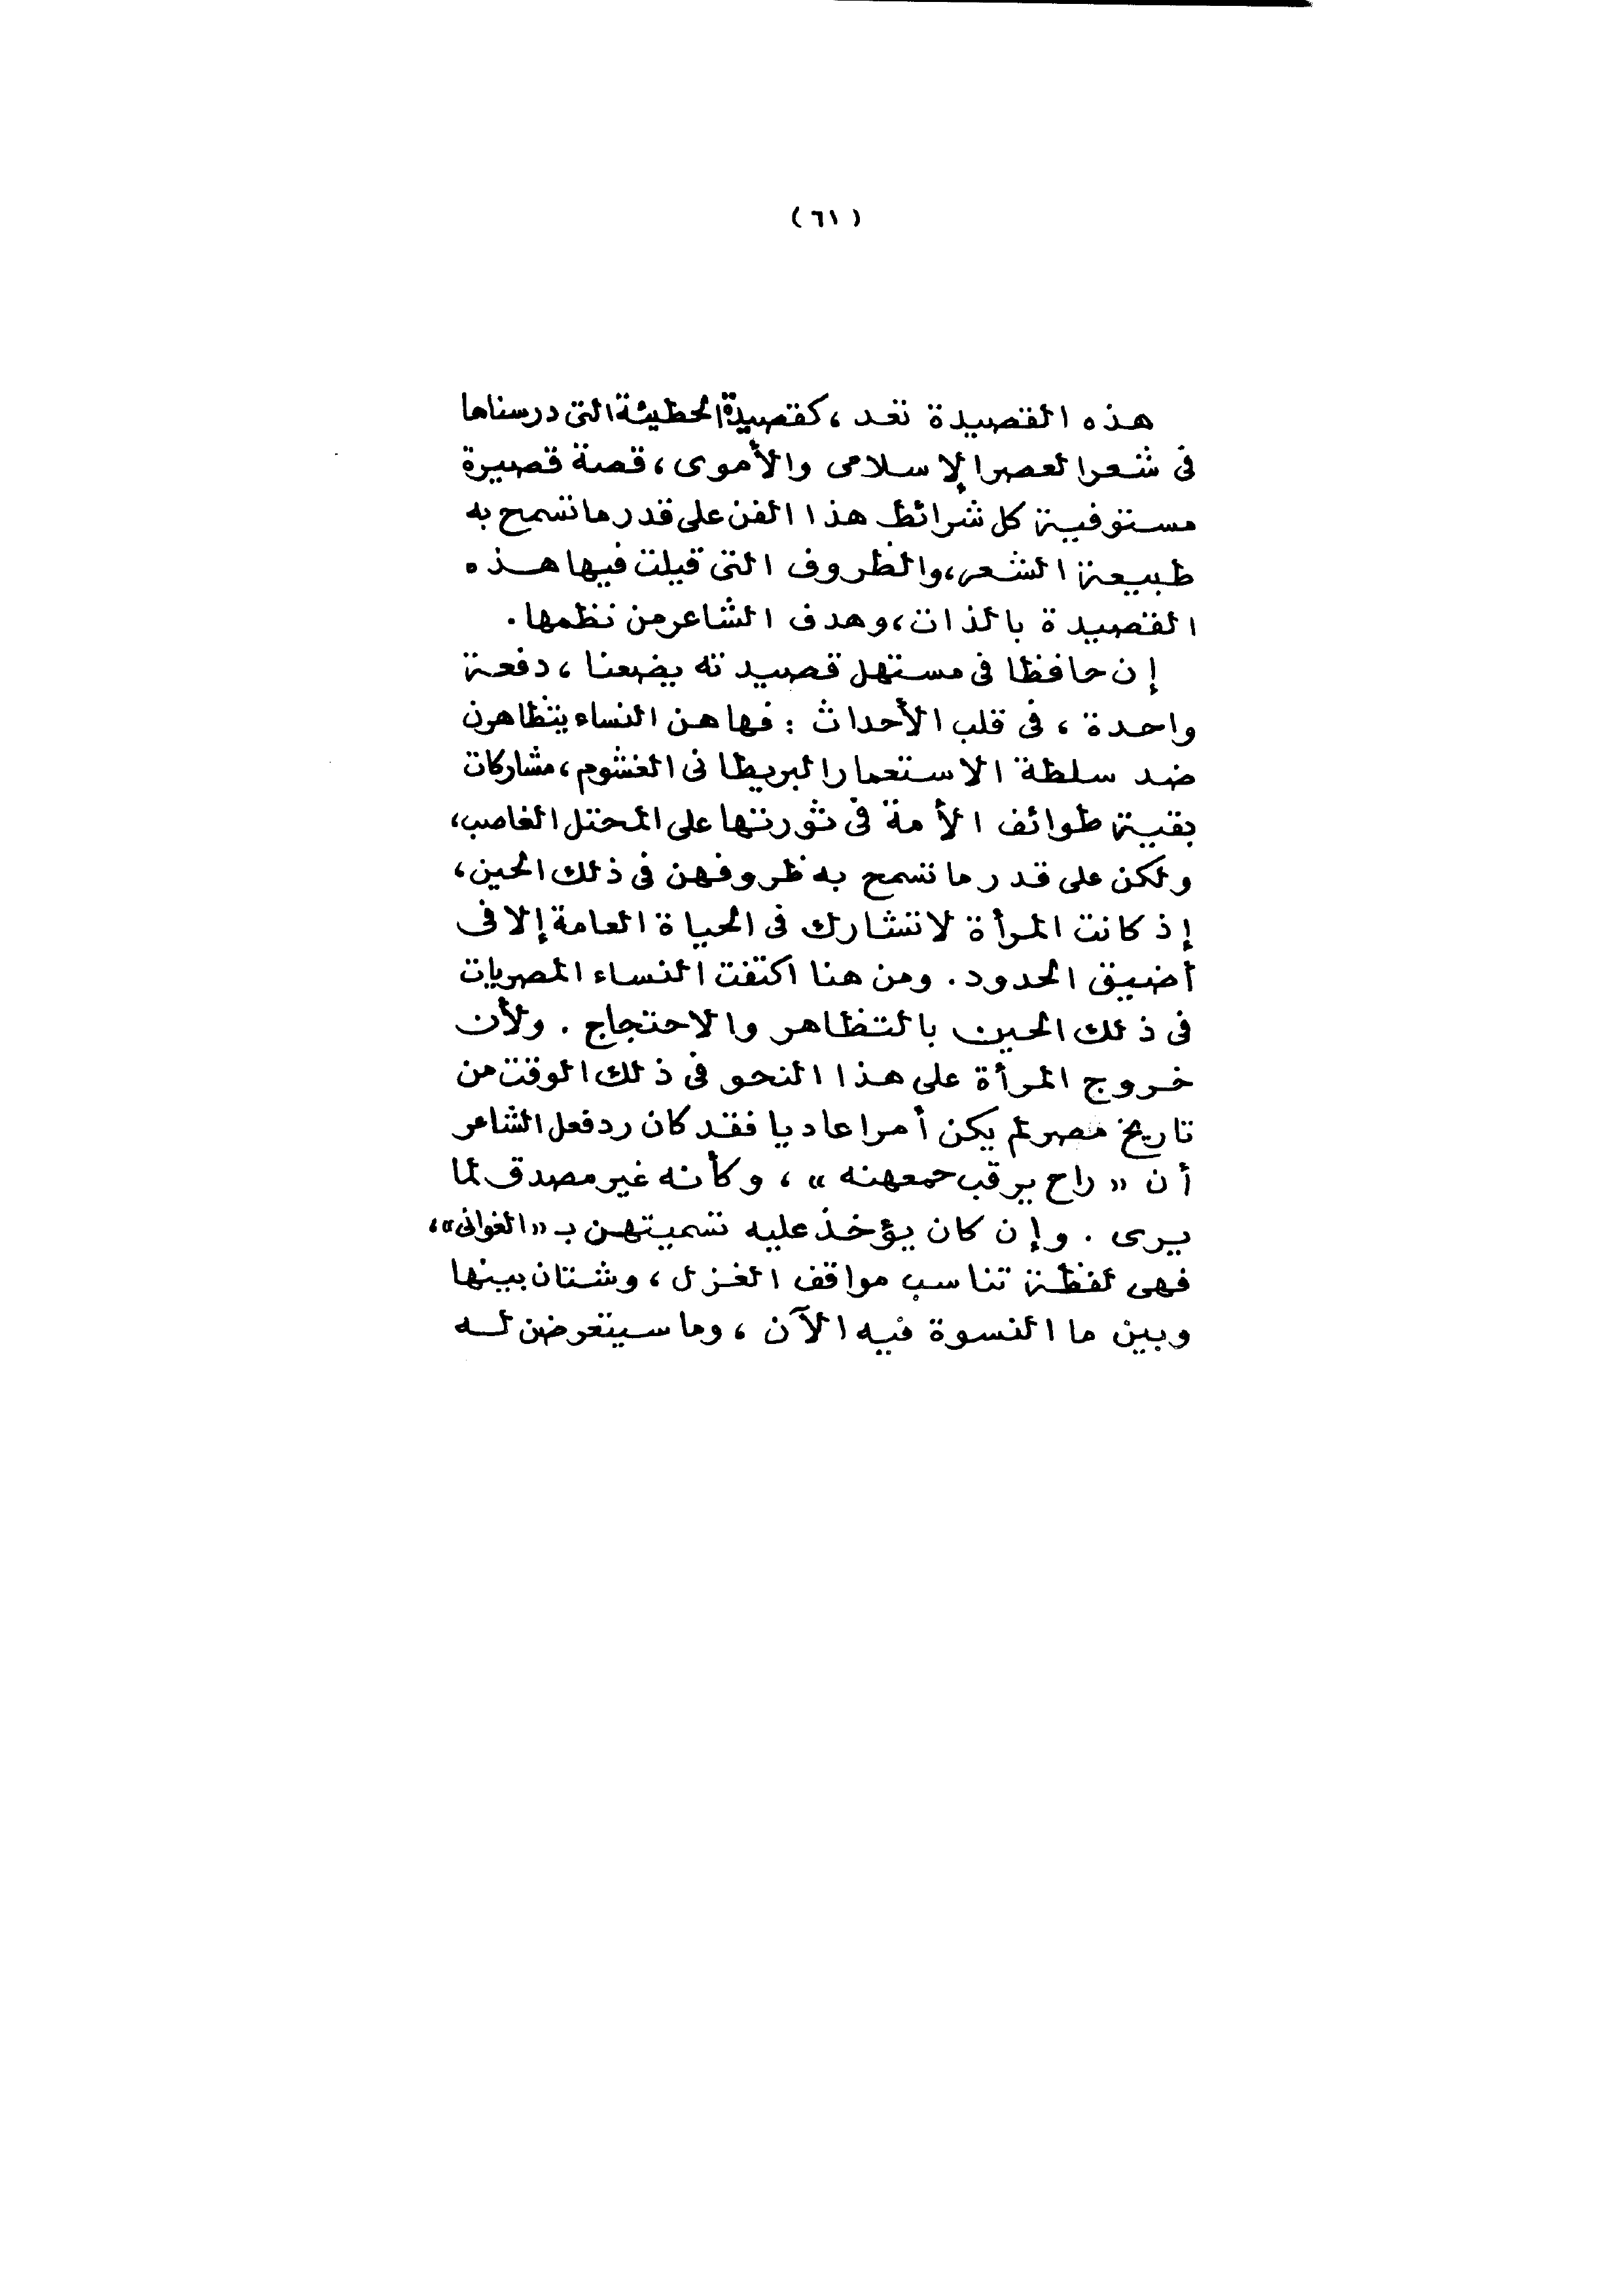 (٦١)
هذه القصيدة تعد ، كقصيدة الحطيئة التى درسناها
فى شعر العصر الإسلامى والأموى ، قصة قصيرة
مستوفية كل شرائط هذا الفن على قدر ما تسمح به
طبيعة الشعر ، والظروف التى قيلت فيها هذه
القصيدة بالذات ، وهدف الشاعر من نظمها .
إن حافظا فى مستهل قصيدته يضعنا ، دفعة
واحدة ، فى قلب الأحداث : فها هن النساء يتظاهرن
ضد سلطة الاستعمار البريطانى الغشوم ، مشاركات
بقية طوائف الأمة فى ثورتها على المحتل الغاصب ،
ولكن على قدر ما تسمح به ظروفهن فى ذلك الحين ،
إذ كانت المرأة لا تشارك فى الحياة العامة إلا فى
أضيق الحدود . ومن هنا اكتفت النساء المصريات
فى ذلك الحين بالتظاهر والاحتجاج . ولأن
خروج المرأة على هذا النحو فى ذلك الوقت من
تاريخ مصر لم يكن أمرا عاديا فقد كان رد فعل الشاعر
أن « راح يرقب جمعهنه » ، وكأنه غير مصدق لما
يرى . وإن كان يؤخذ عليه تسميتهن بـ « الغوانى » ،
فهى لفظة تناسب مواقف الغزل ، وشتان بينها
وبين ما النسوة فيه الآن ، وما سيتعرضن له